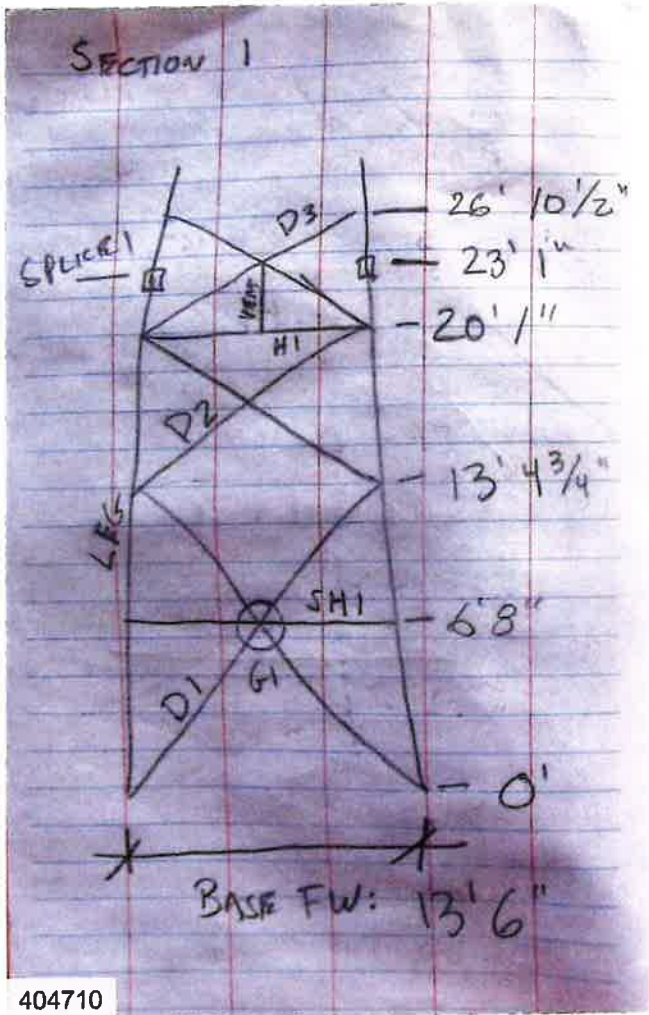 SECTION 1
D3
26' 10 1/2"
SPLICE 1
23' 1"
VERT
H1
20' 1"
D2
13' 4 3/4"
LEG
SH1
6'8"
G1
D1
0'
BASE FW: 13' 6"
404710